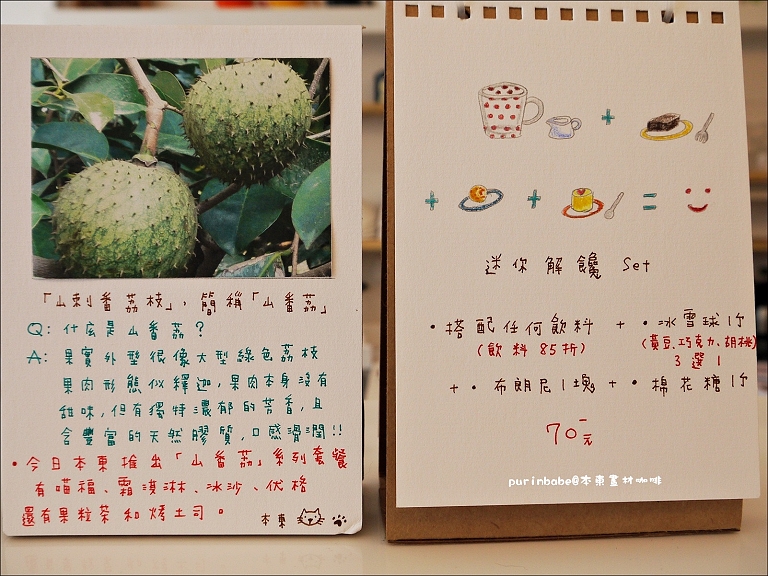 「山刺番荔枝」，簡稱「山番荔」
Q：什麼是山番荔？
A：果實外型很像大型綠色荔枝
果肉形態似繹迦，果肉本身沒有
甜味，但有獨特濃郁的芳香，且
含豐富的天然膠質，口感滑潤!!
• 今日本東推出「山番荔」系列套餐
有喵福、霜淇淋、冰沙、优格
還有果粒茶和烤土司。
本東
+
+ + =
迷你解饞 Set
• 搭配任何飲料 + • 冰雪球1个
(飲料85折) (黃豆、巧克力、胡桃)
3選1
+ • 布朗尼1塊 + • 棉花糖1个
70元
purinbabe@本東畫材咖啡